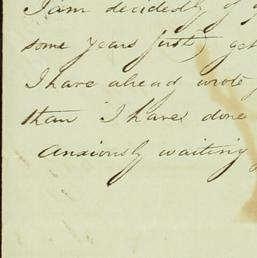 I am decidedly of
some years first) get
I have alread wrote
than I have done
anxiously waiting